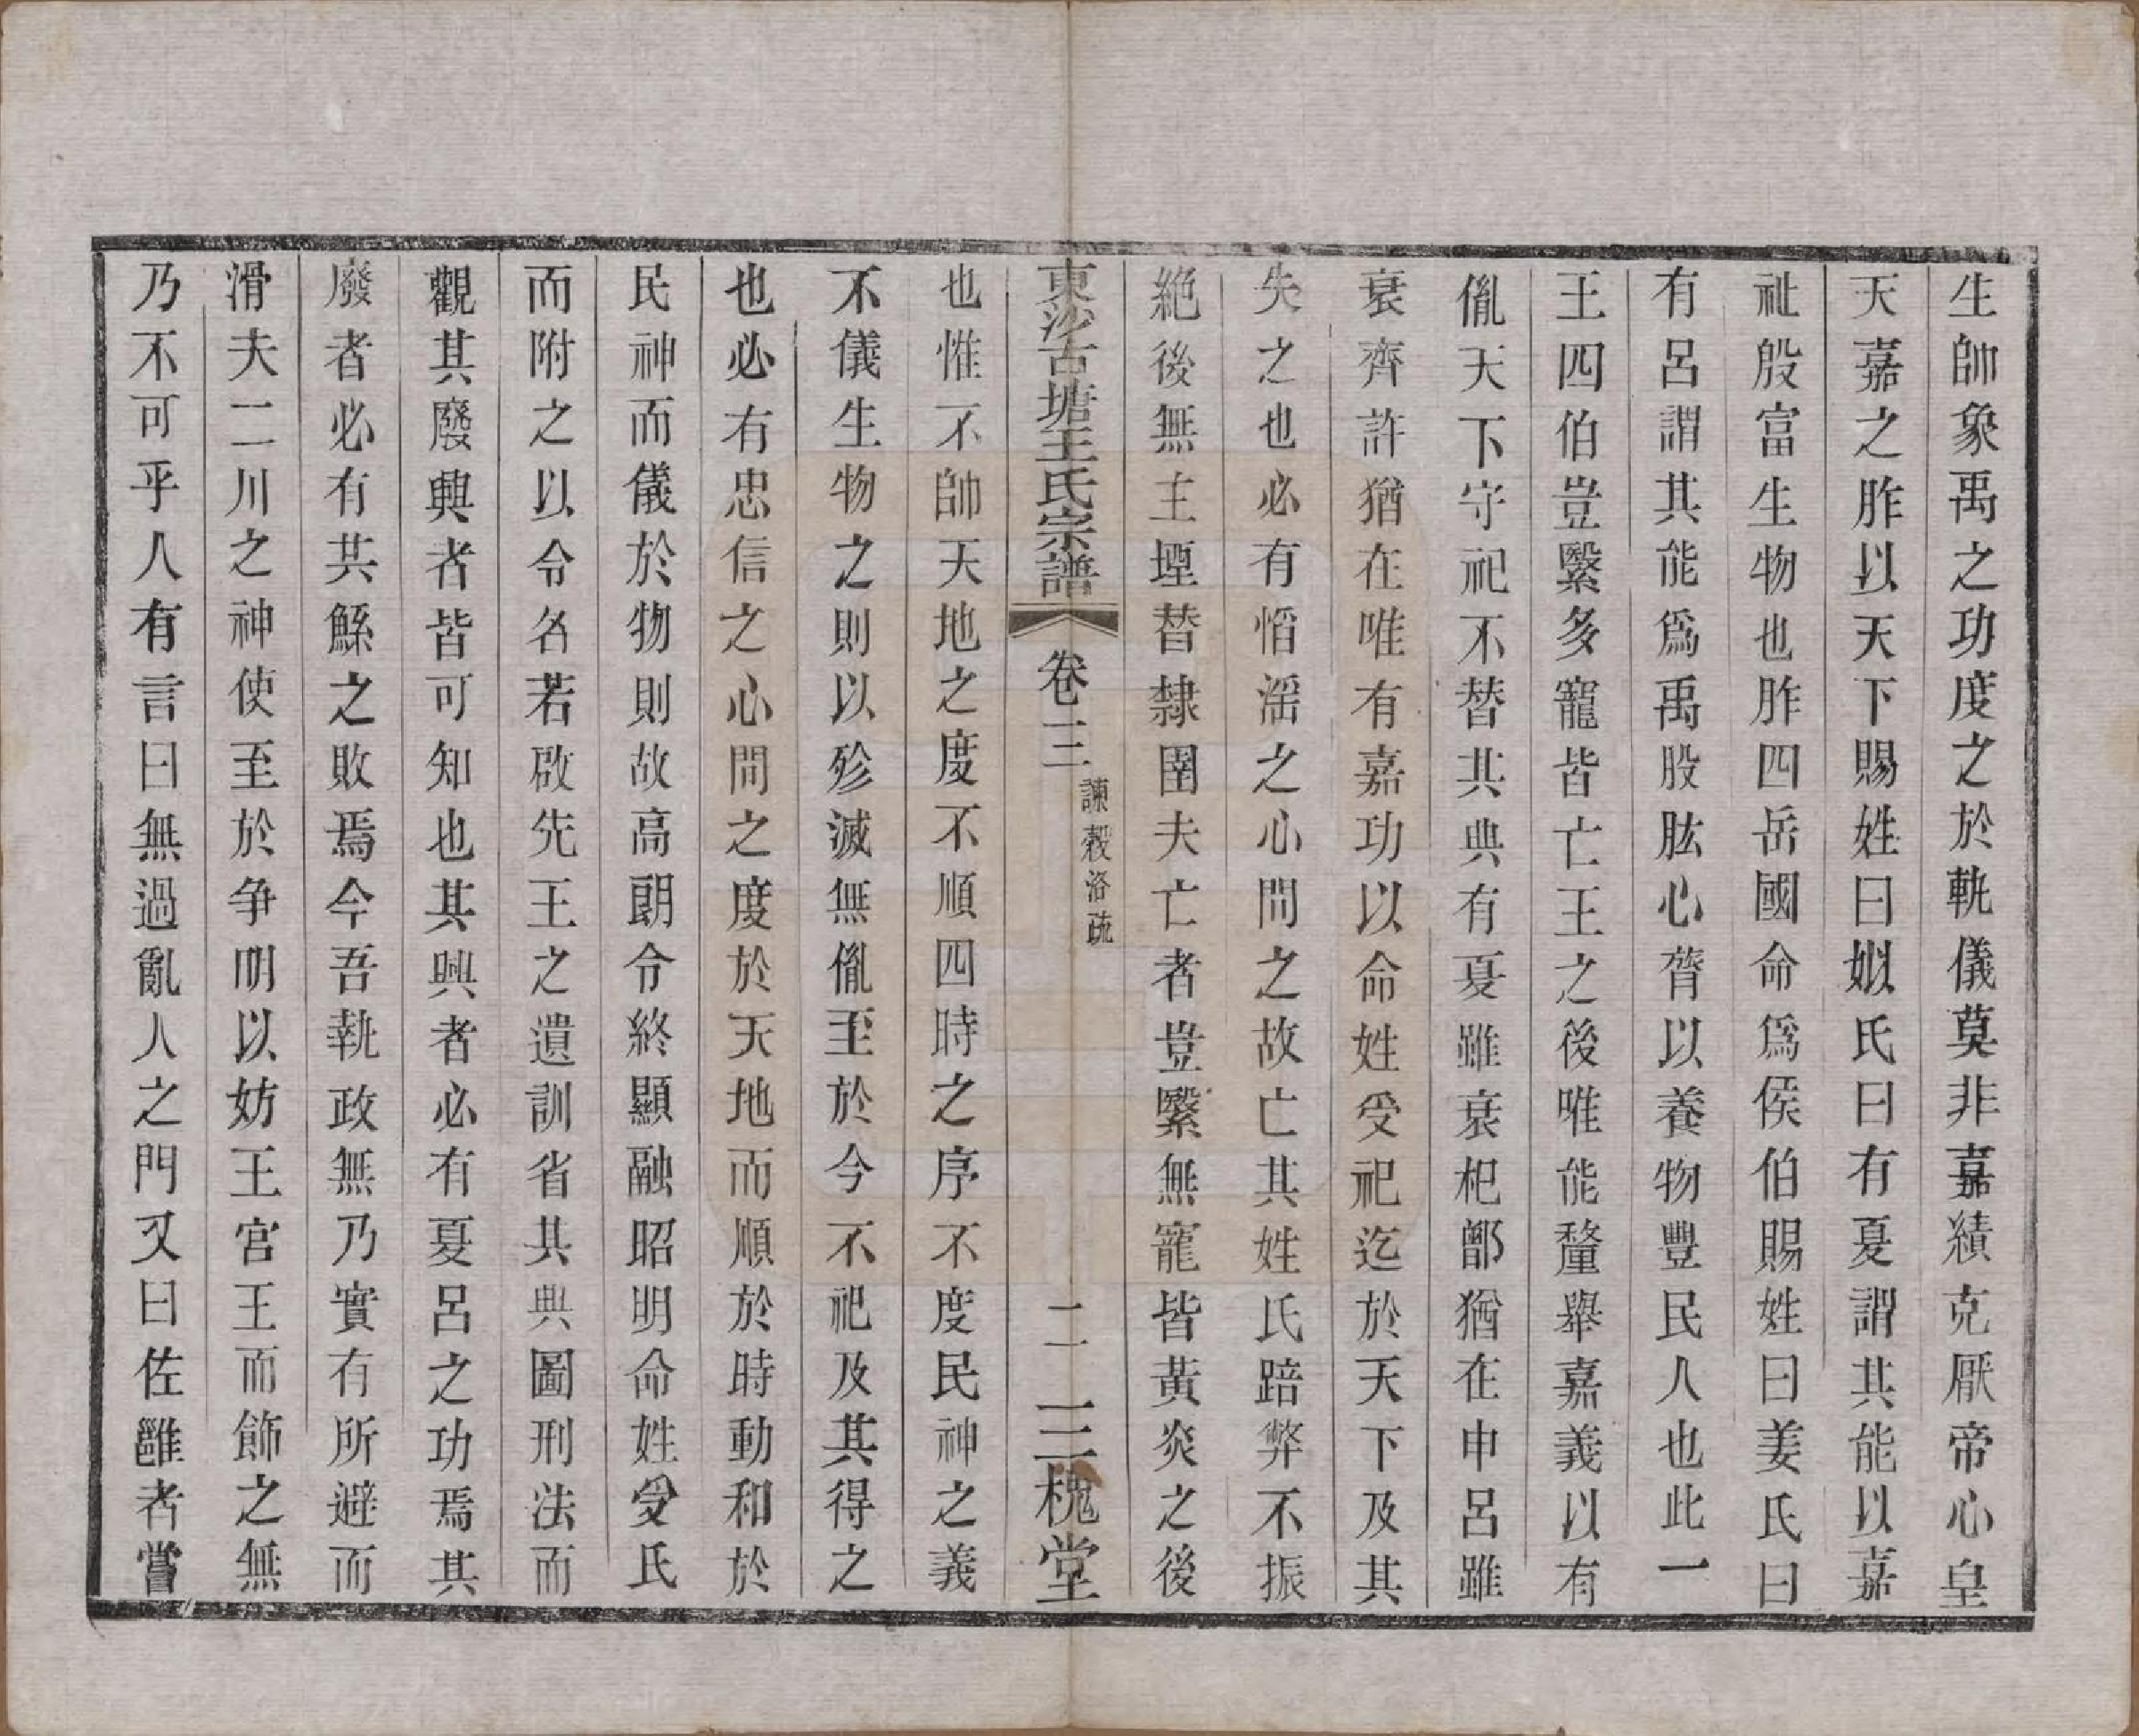 生帥象禹之功度之於軌儀莫非嘉績克厭帝心皇
天嘉之胙以天下賜姓曰姒氏曰有夏謂其能以嘉
祉殷富生物也胙四岳國命爲侯伯賜姓曰姜氏曰
有呂謂其能爲禹股肱心膂以養物豐民人也此一
王四伯豈繄多寵皆亡王之後唯能釐舉嘉義以有
胤天下守祀不替其典有夏雖衰杞鄫猶在申呂雖
衰齊許猶在唯有嘉功以命姓受祀迄於天下及其
失之也必有慆滛之心間之故亡其姓氏踣弊不振
絕後無主堙替隸圉夫亡者豈繄無寵皆黃炎之後
東沙古塘王氏宗譜 卷三 諫穀洛疏 二 三槐堂
也惟不帥天地之度不順四時之序不度民神之義
不儀生物之則以殄滅無胤至於今不祀及其得之
也必有忠信之心間之度於天地而順於時動和於
民神而儀於物則故高朗令終顯融昭明命姓受氏
而附之以令名若啟先王之遺訓省其典圖刑法而
觀其廢興者皆可知也其興者必有夏呂之功焉其
廢者必有共鯀之敗焉今吾執政無乃實有所避而
滑夫二川之神使至於爭明以妨王宮王而飾之無
乃不可乎人有言曰無過亂人之門又曰佐雝者嘗